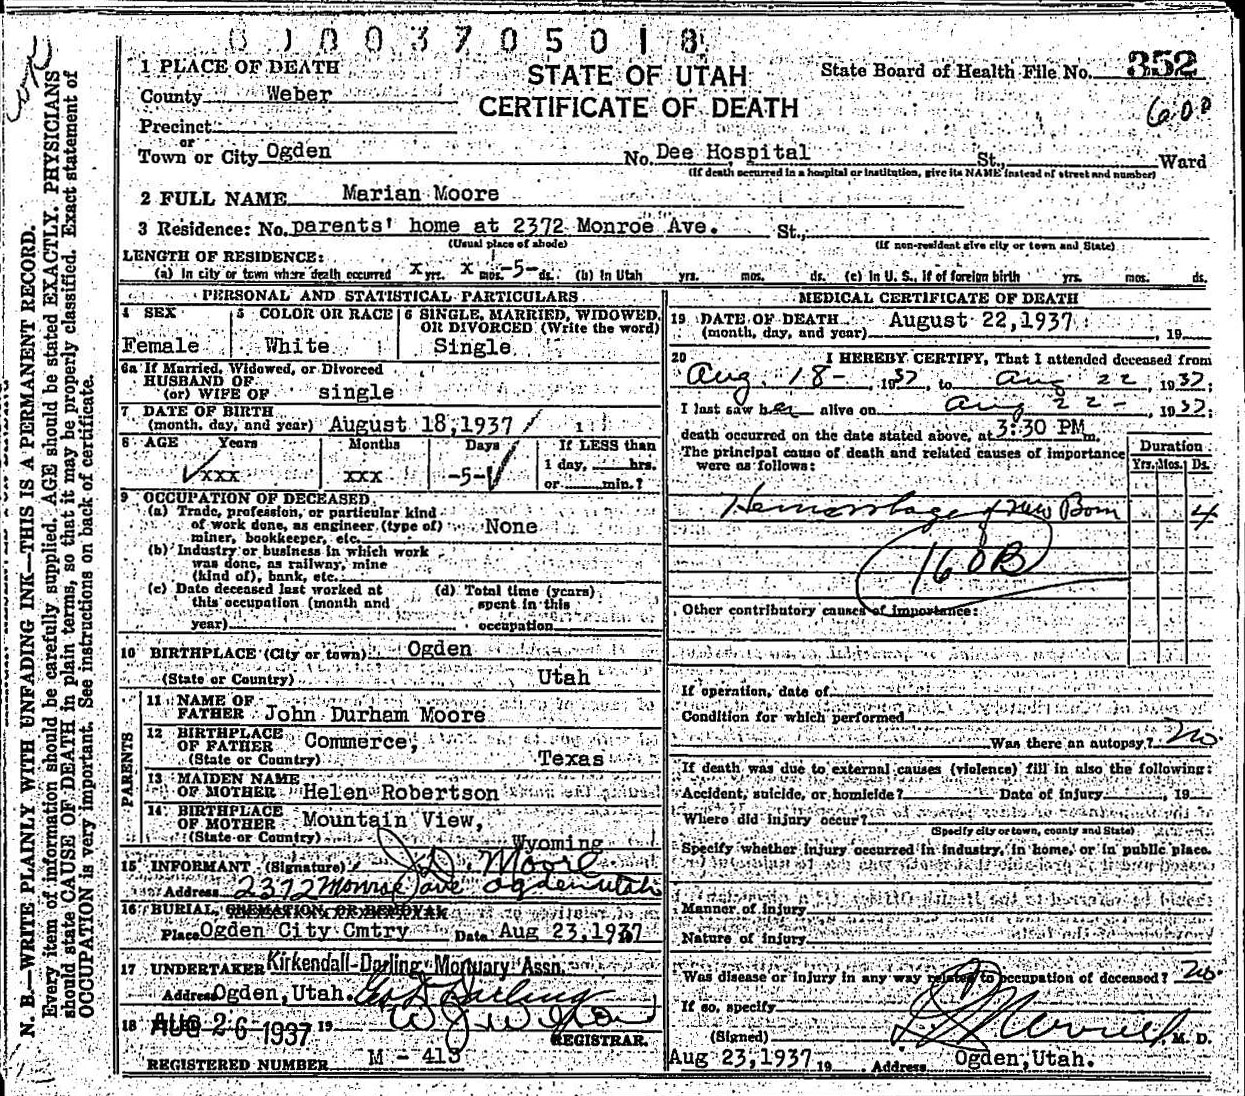 0 1 0 0 3 7 0 5 0 1 8
1 PLACE OF DEATH
STATE OF UTAH
CERTIFICATE OF DEATH
State Board of Health File No. 352
600
County Weber
Precinct
or
Town or City Ogden No. Dee Hospital St., Ward
(If death occurred in a hospital or institution, give its NAME instead of street and number)
2 FULL NAME Marian Moore
3 Residence: No. parents' home at 2372 Monroe Ave. St.,
(Usual place of abode) (If non-resident give city or town and State)
LENGTH OF RESIDENCE:
(a) In city or town where death occurred x yrs. x mos. -5- ds. (b) In Utah yrs. mos. ds. (c) In U. S., if of foreign birth yrs. mos. ds.
PERSONAL AND STATISTICAL PARTICULARS
4 SEX
Female
5 COLOR OR RACE
White
6 SINGLE, MARRIED, WIDOWED, OR DIVORCED (Write the word)
Single
6a If Married, Widowed, or Divorced
HUSBAND OF
(or) WIFE OF single
7 DATE OF BIRTH
(month, day, and year) August 18,1937
8 AGE Years Months Days If LESS than
xxx xxx -5- 1 day, hrs.
or min.?
9 OCCUPATION OF DECEASED
(a) Trade, profession, or particular kind
of work done, as engineer (type of) None
miner, bookkeeper, etc.
(b) Industry or business in which work
was done, as railway, mine
(kind of), bank, etc.
(c) Date deceased last worked at (d) Total time (years)
this occupation (month and spent in this
year) occupation
10 BIRTHPLACE (City or town) Ogden
(State or Country) Utah
PARENTS
11 NAME OF
FATHER John Durham Moore
12 BIRTHPLACE
OF FATHER Commerce,
(State or Country) Texas
13 MAIDEN NAME
OF MOTHER Helen Robertson
14 BIRTHPLACE
OF MOTHER Mountain View,
(State or Country) Wyoming
15 INFORMANT (Signature) J D. Moore
Address 2372 Monroe ave ogden utah
16 BURIAL, CREMATION, OR REMOVAL
Place Ogden City Cmtry Date Aug 23,1937
17 UNDERTAKER Kirkendall-Darling Mortuary Assn.
Address Ogden,Utah. Geo D Darling
18 AUG 26 1937 19
REGISTRAR.
REGISTERED NUMBER M - 413
MEDICAL CERTIFICATE OF DEATH
19 DATE OF DEATH August 22,1937
(month, day, and year) , 19
20 I HEREBY CERTIFY, That I attended deceased from
Aug. 18 - , 1937, to Aug 22 , 1937;
I last saw her alive on Aug 22 - , 1937;
death occurred on the date stated above, at 3:30 PM m.
The principal cause of death and related causes of importance
were as follows:
Duration
Yrs. Mos. Ds.
Hemorrhage of New Born 4
160B
Other contributory causes of importance:
If operation, date of
Condition for which performed
Was there an autopsy? No.
If death was due to external causes (violence) fill in also the following:
Accident, suicide, or homicide? Date of injury , 19
Where did injury occur?
(Specify city or town, county and State)
Specify whether injury occurred in industry, in home, or in public place.
Manner of injury
Nature of injury
Was disease or injury in any way related to occupation of deceased? No.
If so, specify
(Signed) M. D.
Aug 23,1937 19 Address Ogden,Utah.
N. B.—WRITE PLAINLY WITH UNFADING INK—THIS IS A PERMANENT RECORD.
Every item of information should be carefully supplied. AGE should be stated EXACTLY. PHYSICIANS
should state CAUSE OF DEATH in plain terms, so that it may be properly classified. Exact statement of
OCCUPATION is very important. See instructions on back of certificate.